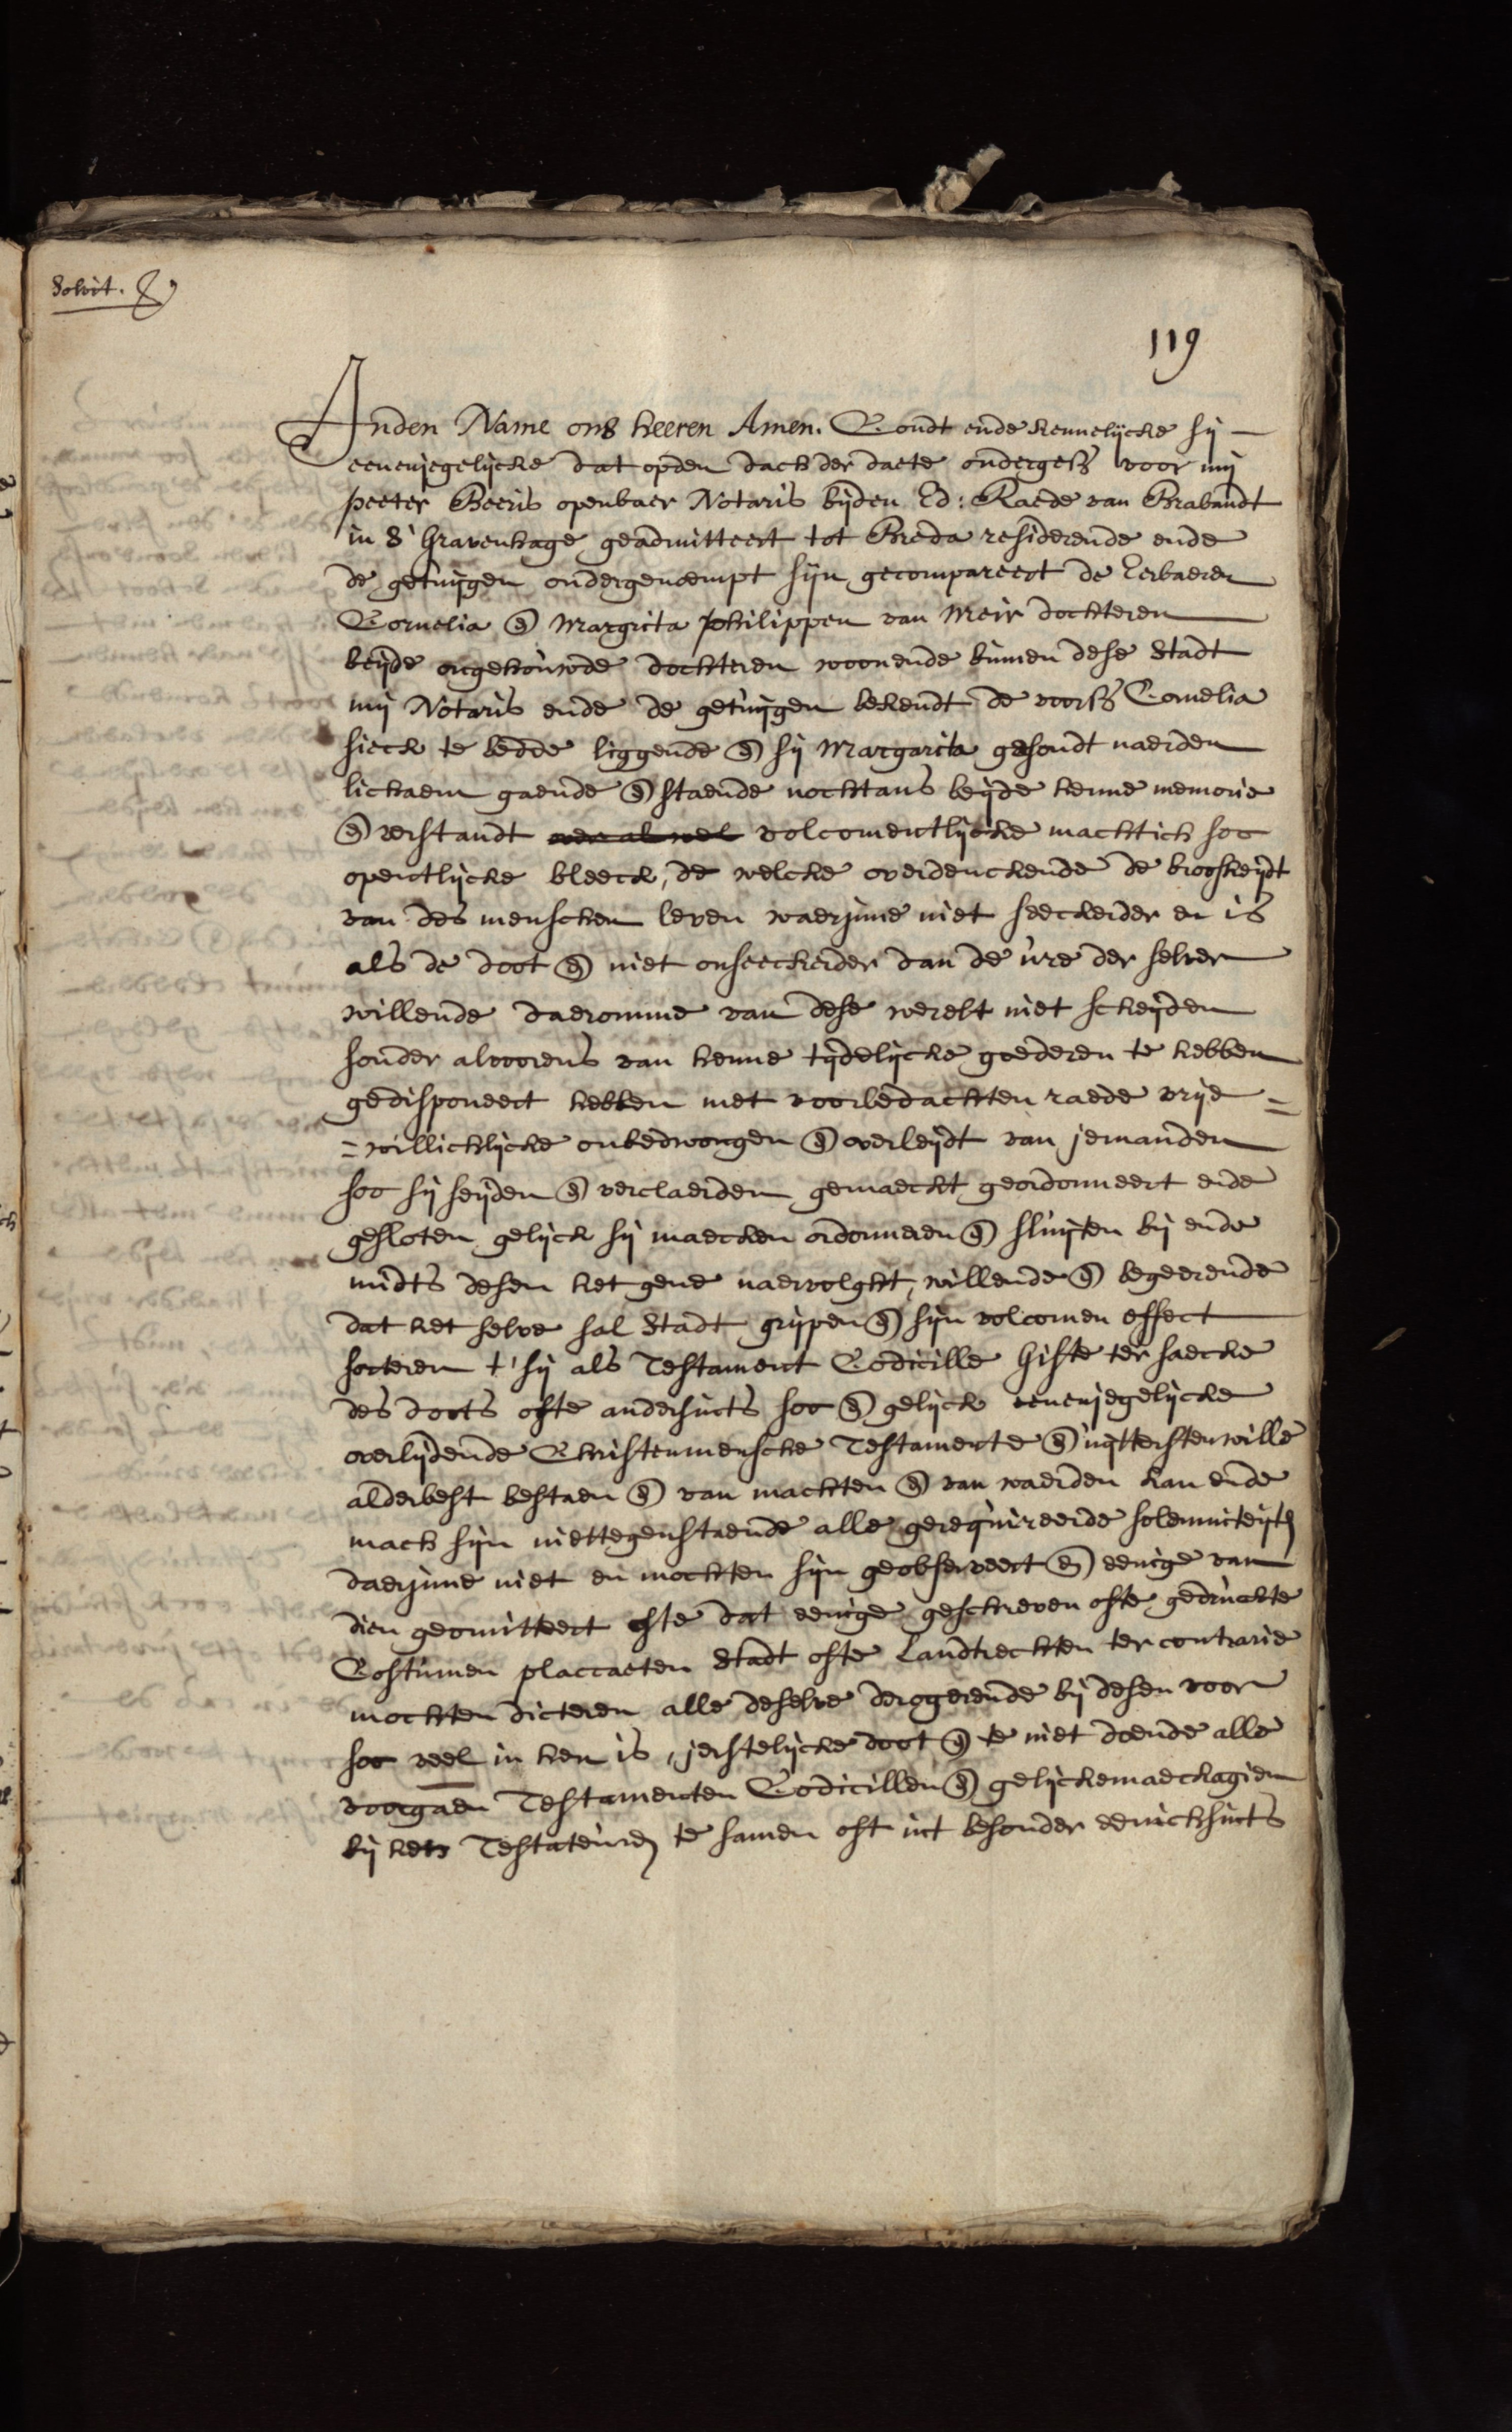 Solvit.
119
Inden Name ons heeren Amen. Condt ende kennelijcke sij
eenenjegelijcke dat opden dach der daete ondergess voor mij
peeter Beeris openbaer Notaris bijden Ed: Raede van Brabandt
in S' Gravenhage geadmitteert tot Breda residerende ende
de getuijgen ondergenoempt sijn gecompareert de Eerbaeren
Cornelia en Margrita philippen van Meir dochteren
beijde ongehouwde dochteren woonende binnen dese Stadt
mij Notaris ende de getuijgen bekendt de voorss Cornelia
sieck te bedde liggende en sij Margarita gesondt naerden
lichaem gaende en staende nochtans beijde henne memorie
en verstandt volcomentlijcke machtich soo
opentlijcke bleeck, de welcke overdenckende de broosheijdt
van des menschen leven waerjnne niet seeckerder en is
als de doot en niet onseeckerder dan de ure der selver
willende daeromme van dese werelt niet scheijden
sonder alvoorens van henne tijdelijcke goederen te hebben
gedisponeert hebben met voorbedachten raede vrije =
= willichlijcke onbedwongen en overleijdt van jemanden
soo sij seijden en verclaerden gemaeckt geordonneert ende
gesloten gelijck sij maecken ordonneren en sluijten bij ende
midts desen het gene naervolght, willende en begeerende
dat het selve sal Stadt grijpen en sijn volcomen effect
sorteren t'sij als Testament Codicille Gifte ter saecke
des doots ofte andersints soo en gelijck eenenjegelijcke
overlijdende Christenmensche Testamente en uijttersten wille
alderbest bestaen en van machten en van waerden kan ende
mach sijn niettegenstaende alle gerequireerde solemniteijten
daerjnne niet en mochten sijn geobserveert en eenige van
dien geomitteert ofte dat eenige geschreven ofte gedruckte
Costumen placcaeten Stadt ofte Landtrechten ter contrarie
mochten dicteren alle deselve derogerende bij desen voor
soo veel in hen is, jerstelijcke doot en te niet doende alle
voorgaen Testamenten Codicillen en gelijckemaeckagien
bij hen Testateuren te samen oft int besonder eenichsints